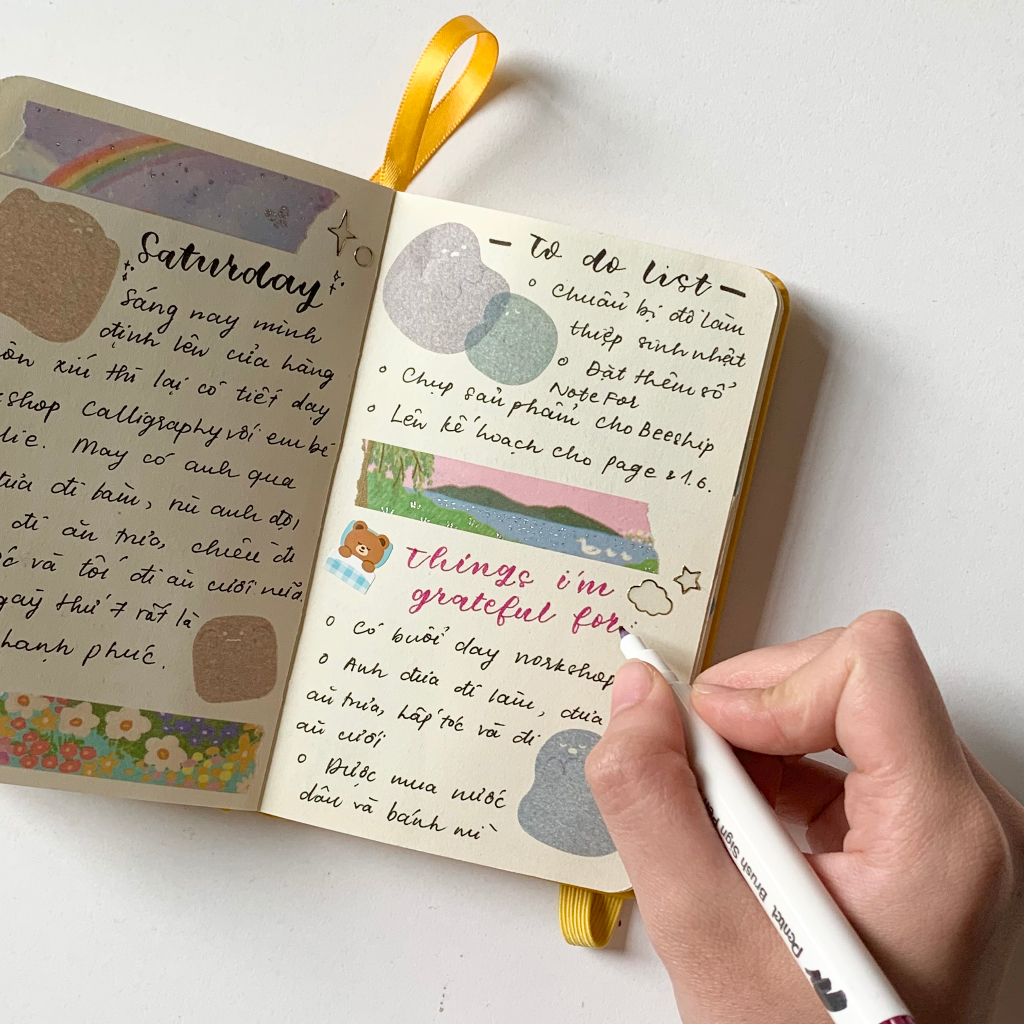 Saturday
Sáng nay mình
định lên cửa hàng
xíu thì lại có tiết dạy
Calligraphy với em bé
May có anh qua
đi làm, rủ anh đợi
đi ăn trưa, chiều đi
và tối đi ăn cưới nữa.
thứ 7 rất là
hạnh phúc.
- To do list -
o Chuẩn bị đồ làm
thiệp sinh nhật
o Đặt thêm sổ
Note For
o Chụp sản phẩm cho Beeship
o Lên kế hoạch cho page 21.6.
things i'm
grateful for:
o Có buổi dạy workshop
o Anh đưa đi làm, đưa
ăn trưa, hấp tóc và đi
ăn cưới
o Được mua nước
dâu và bánh mì
Pentel Brush Sign Pen